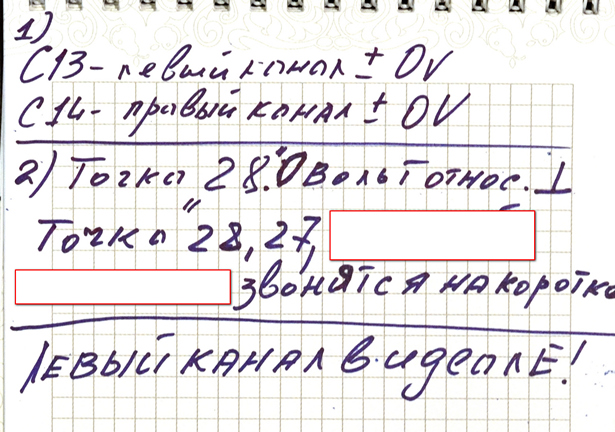 1)
С13 - левый канал ± 0V
С14 - правый канал ± 0V
2) Точка "28" 0 вольт относ. ⊥
Точка 28, 27,
звонятся накоротко
ЛЕВЫЙ КАНАЛ В идеалЕ!